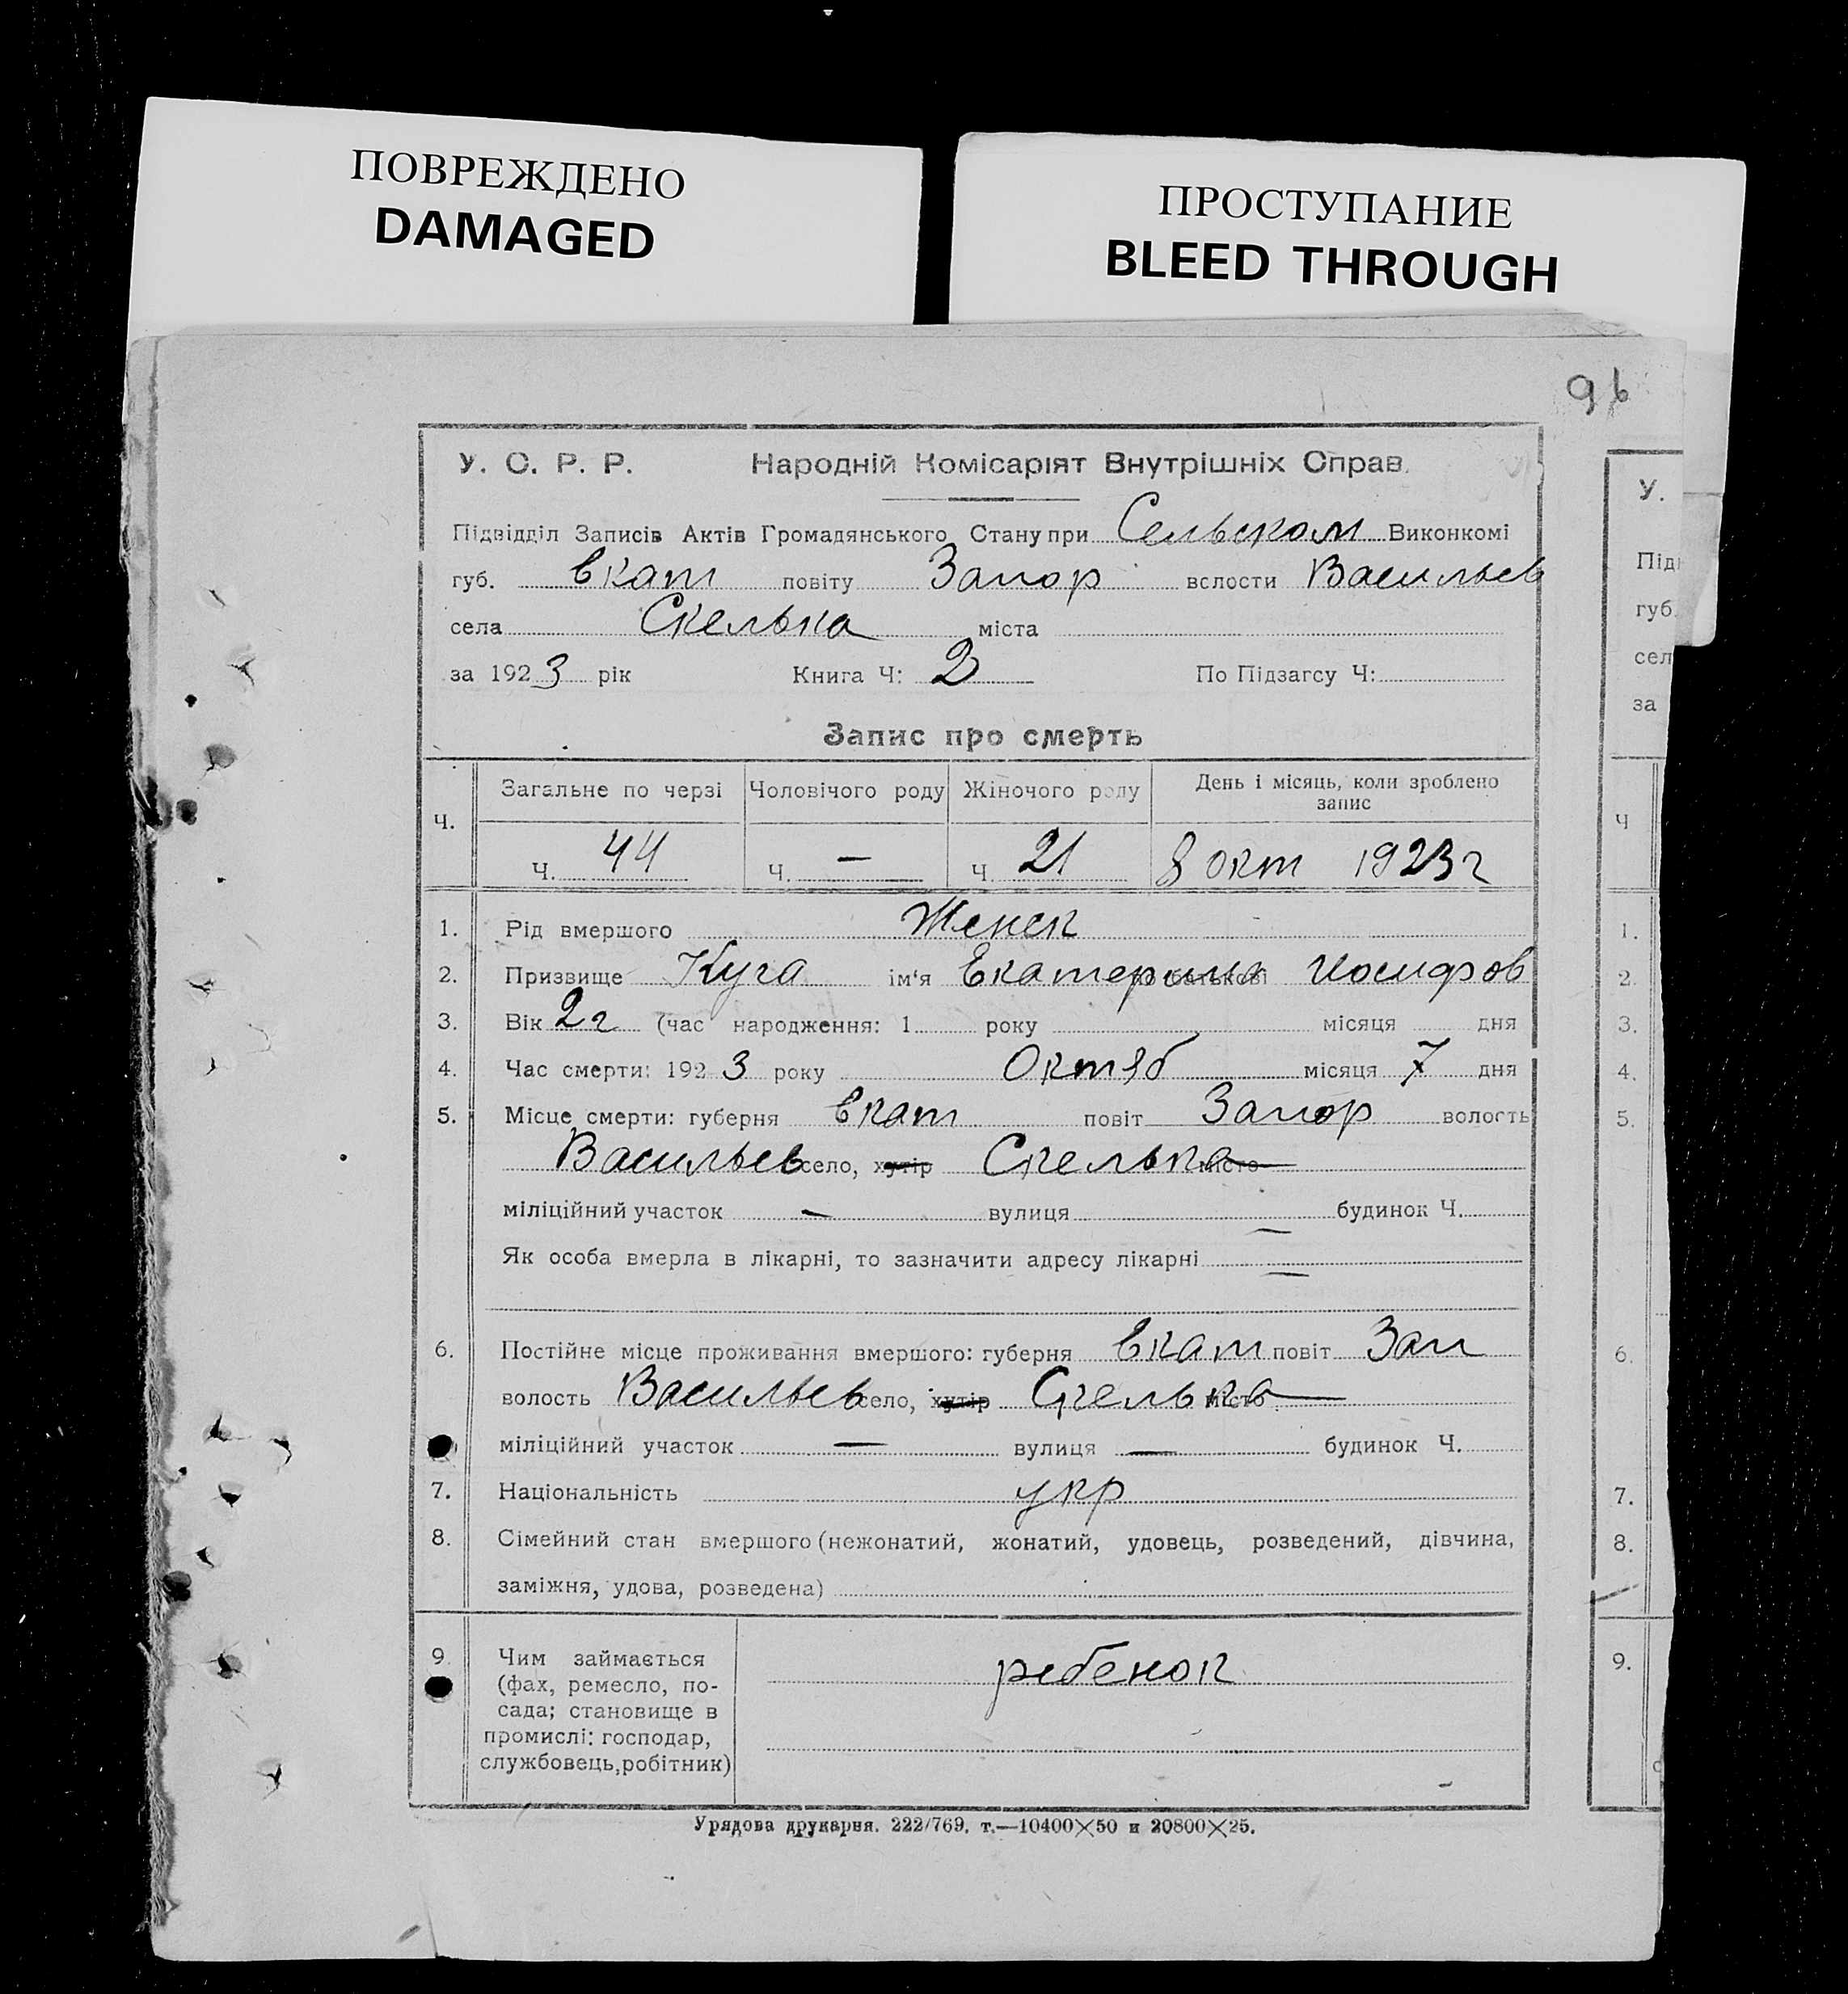 ПОВРЕЖДЕНО
DAMAGED
ПРОСТУПАНИЕ
BLEED THROUGH
96
У. С. Р. Р. Народній Комісаріят Внутрішніх Справ.
Підвідділ Записів Актів Громадянського Стану при Сельском Виконкомі
губ. Екат повіту Запор волости Васильев
села Скелька міста
за 1923 рік Книга Ч: 2 По Підзагсу Ч:
Запис про смерть
Ч. Загальне по черзі Чоловічого роду Жіночого роду День і місяць, коли зроблено запис
Ч. 44 Ч. — Ч. 21 8 окт 1923 г
1. Рід вмершого Женск
2. Призвище Куча ім'я Екатерина по батькові Иосифов
3. Вік 2 г (час народження: 1 року місяця дня
4. Час смерти: 1923 року Октяб місяця 7 дня
5. Місце смерти: губерня Екат повіт Запор волость
Васильев село, хутір Скелька місто
міліційний участок — вулиця — будинок Ч.
Як особа вмерла в лікарні, то зазначити адресу лікарні —
6. Постійне місце проживання вмершого: губерня Екат повіт Зап
волость Васильев село, хутір Скелька місто
міліційний участок — вулиця — будинок Ч.
7. Національність укр
8. Сімейний стан вмершого (нежонатий, жонатий, удовець, розведений, дівчина,
заміжня, удова, розведена)
9. Чим займається ребенок
(фах, ремесло, по-
сада; становище в
промислі: господар,
службовець, робітник)
Урядова друкарня. 222/769. т.—10400×50 и 20800×25.
У.
Підв
губ.
сел
за
Ч
1.
2.
3.
4.
5.
6.
7.
8.
9.